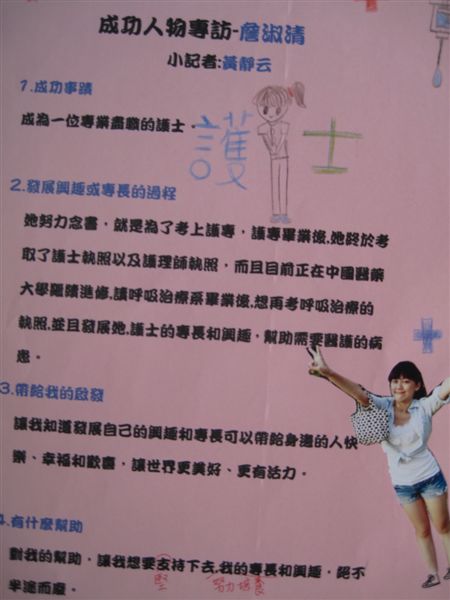 成功人物專訪-詹淑清
小記者:黃靜云
1.成功事蹟
成為一位專業盡職的護士。
護士
2.發展興趣或專長的過程
她努力念書，就是為了考上護專，護專畢業後,她終於考
取了護士執照以及護理師執照，而且目前正在中國醫藥
大學繼續進修,讀呼吸治療系畢業後,想再考呼吸治療的
執照,並且發展她,護士的專長和興趣，幫助需要醫護的病
患。
3.帶給我的啟發
讓我知道發展自己的興趣和專長可以帶給身邊的人快
樂、幸福和歡喜，讓世界更美好、更有活力。
4.有什麼幫助
對我的幫助，讓我想要支持下去,我的專長和興趣，絕不
堅 努力培養
半途而廢。